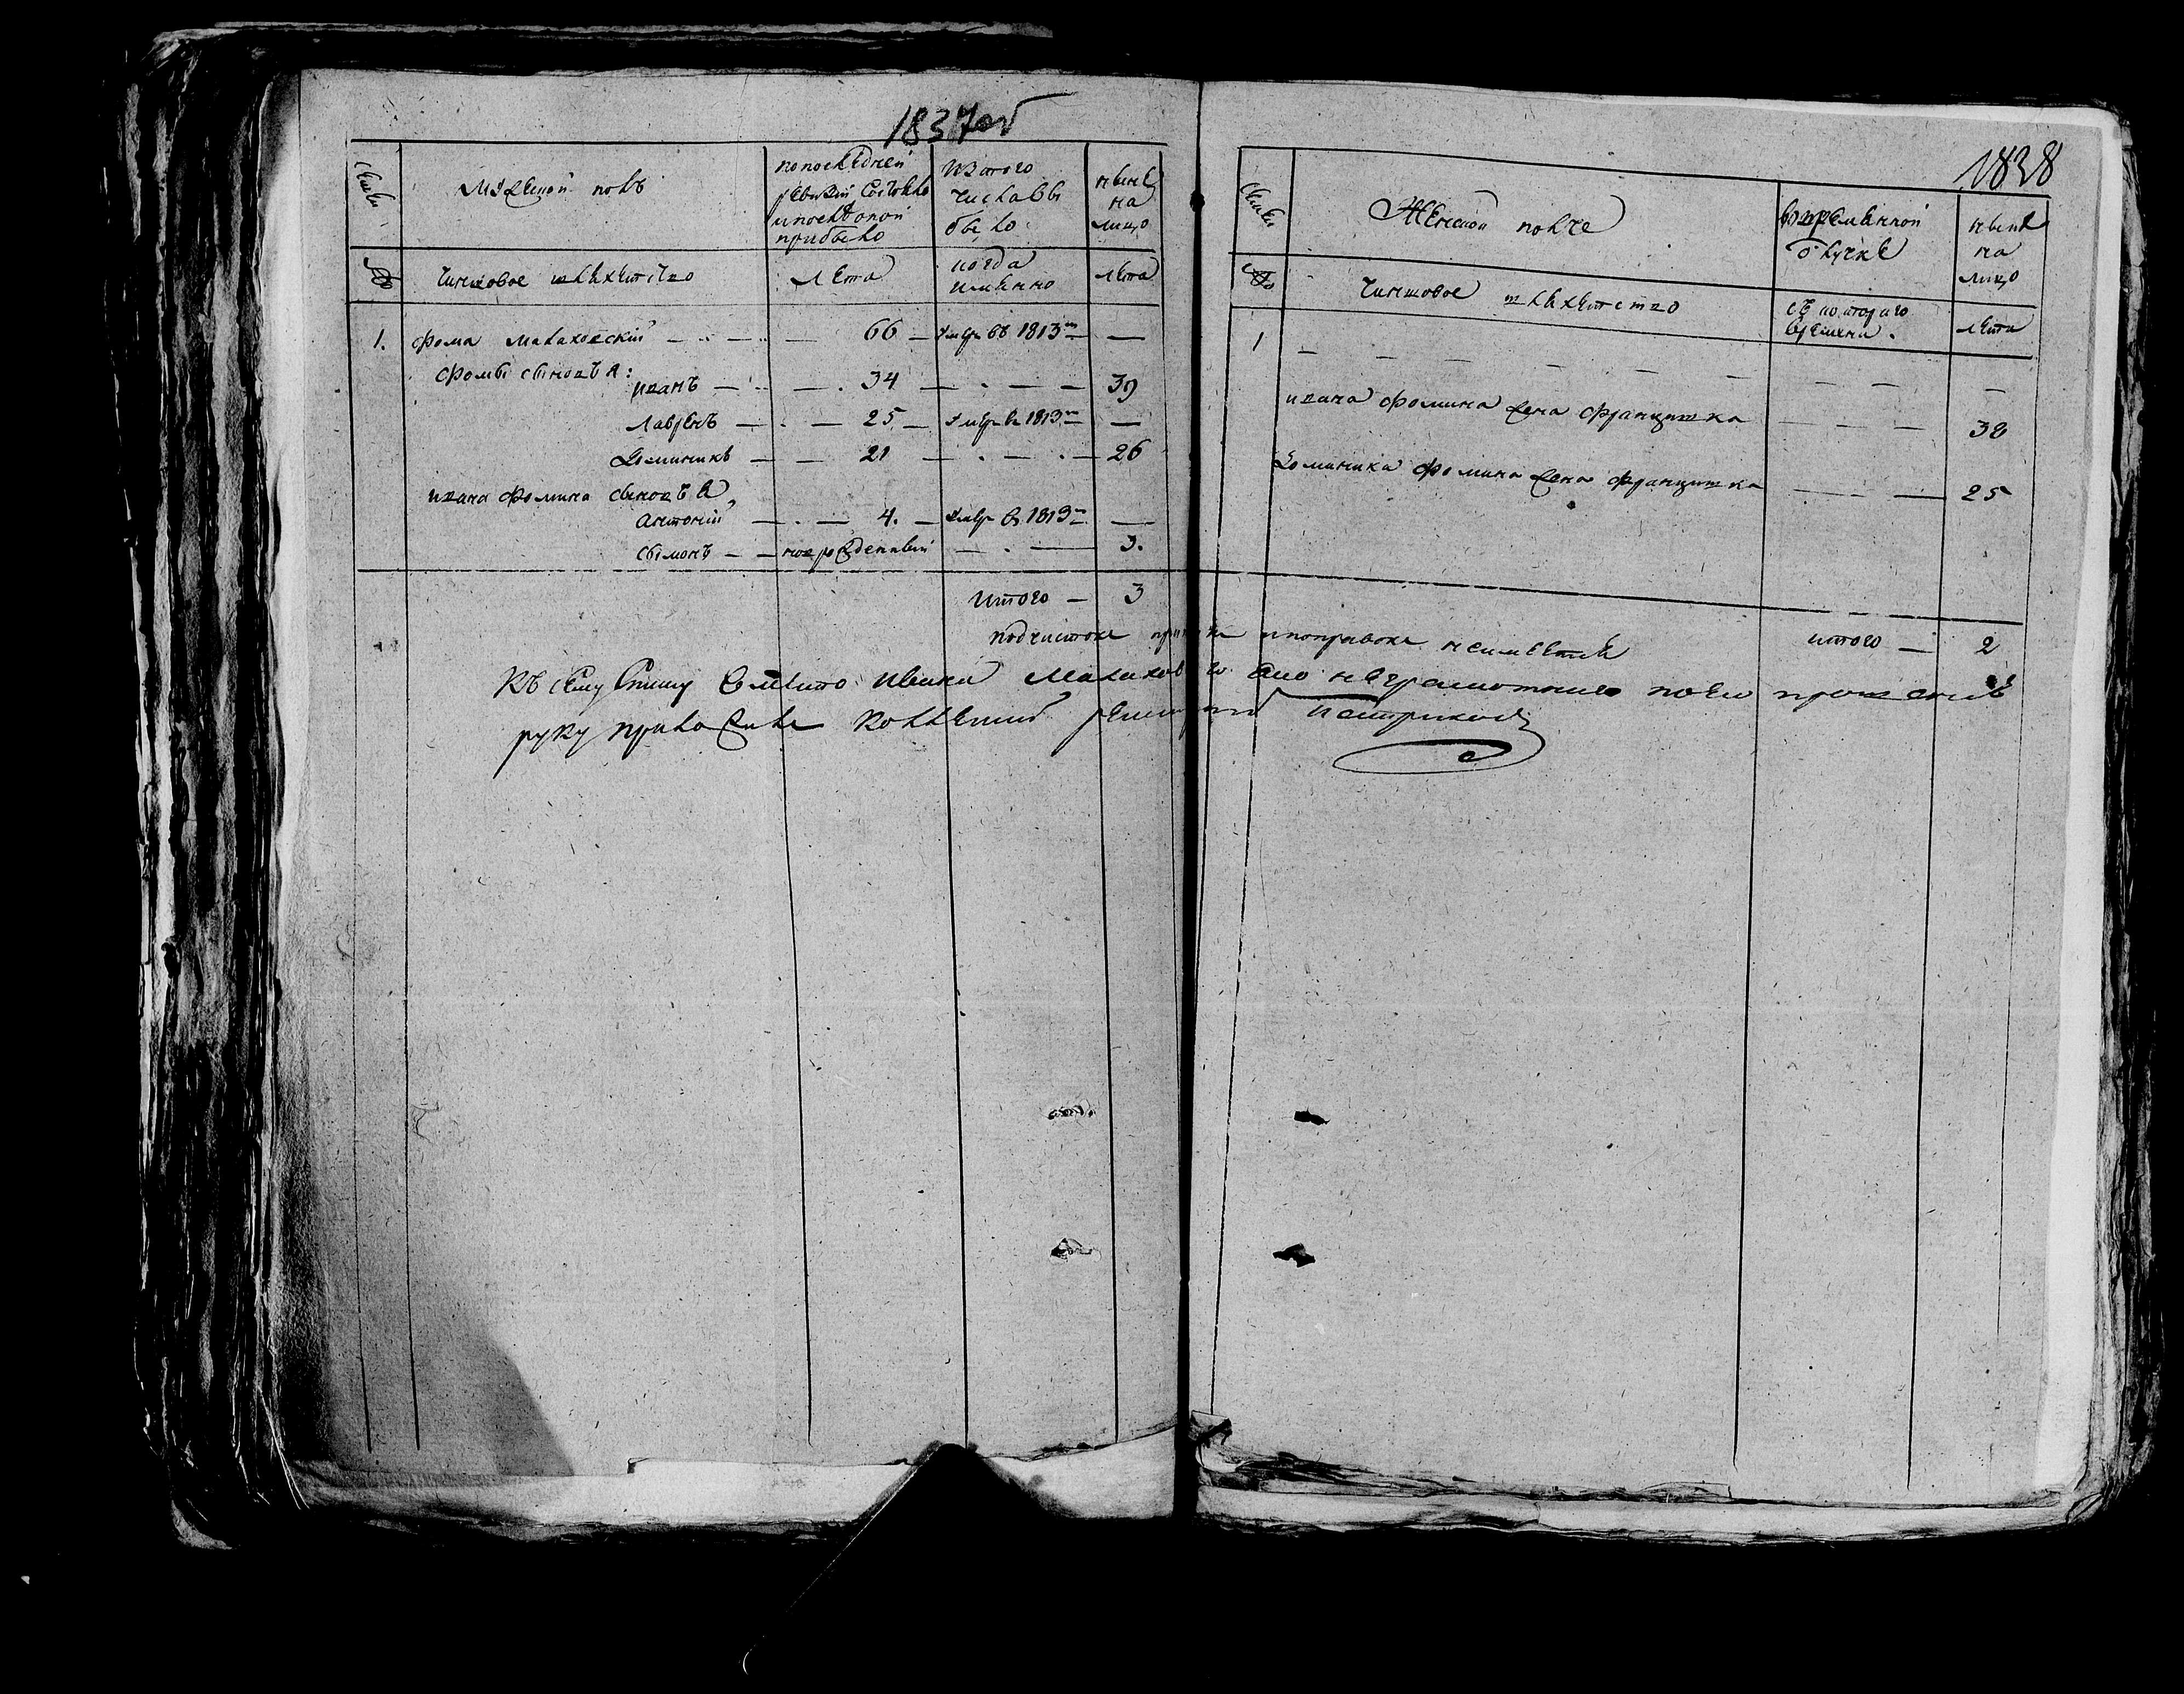 1837об
Семьи
Мужеской полъ
попоследней ревизiи состояло ипослеоной прибыло
Изтого числа выбыло
ныне на лицо
№
Чиншовое шляхетство
Лета
когда имянно
лета
1. Фома Малаховскiй — — 66 — умеръ въ 1813м —
Фомы сыновъя:
иванъ — — 34 — — 39
Лавренъ — — 25 — умеръ в 1813м —
Доминикъ — — 21 — — 26
ивана Фомина сыновъя
антонiй — — 4. — умеръ в 1813м —
сымонъ — — новорожденный — — 3.
Итого — 3
1838
Семьи
Женской полъ
вовременной отлучке
ныне на лицо
№
Чиншовое шляхетство
съ котораго времени.
лета
1 — — — — — — — —
ивана Фомина жена Францишка — — — 38
Доминика Фомина жена Францишка — — — 25
итого — 2
подчисток ипоправок неимеется
Къ сему вместо Ивана неграмотного поего прозбе
руку приложилъ